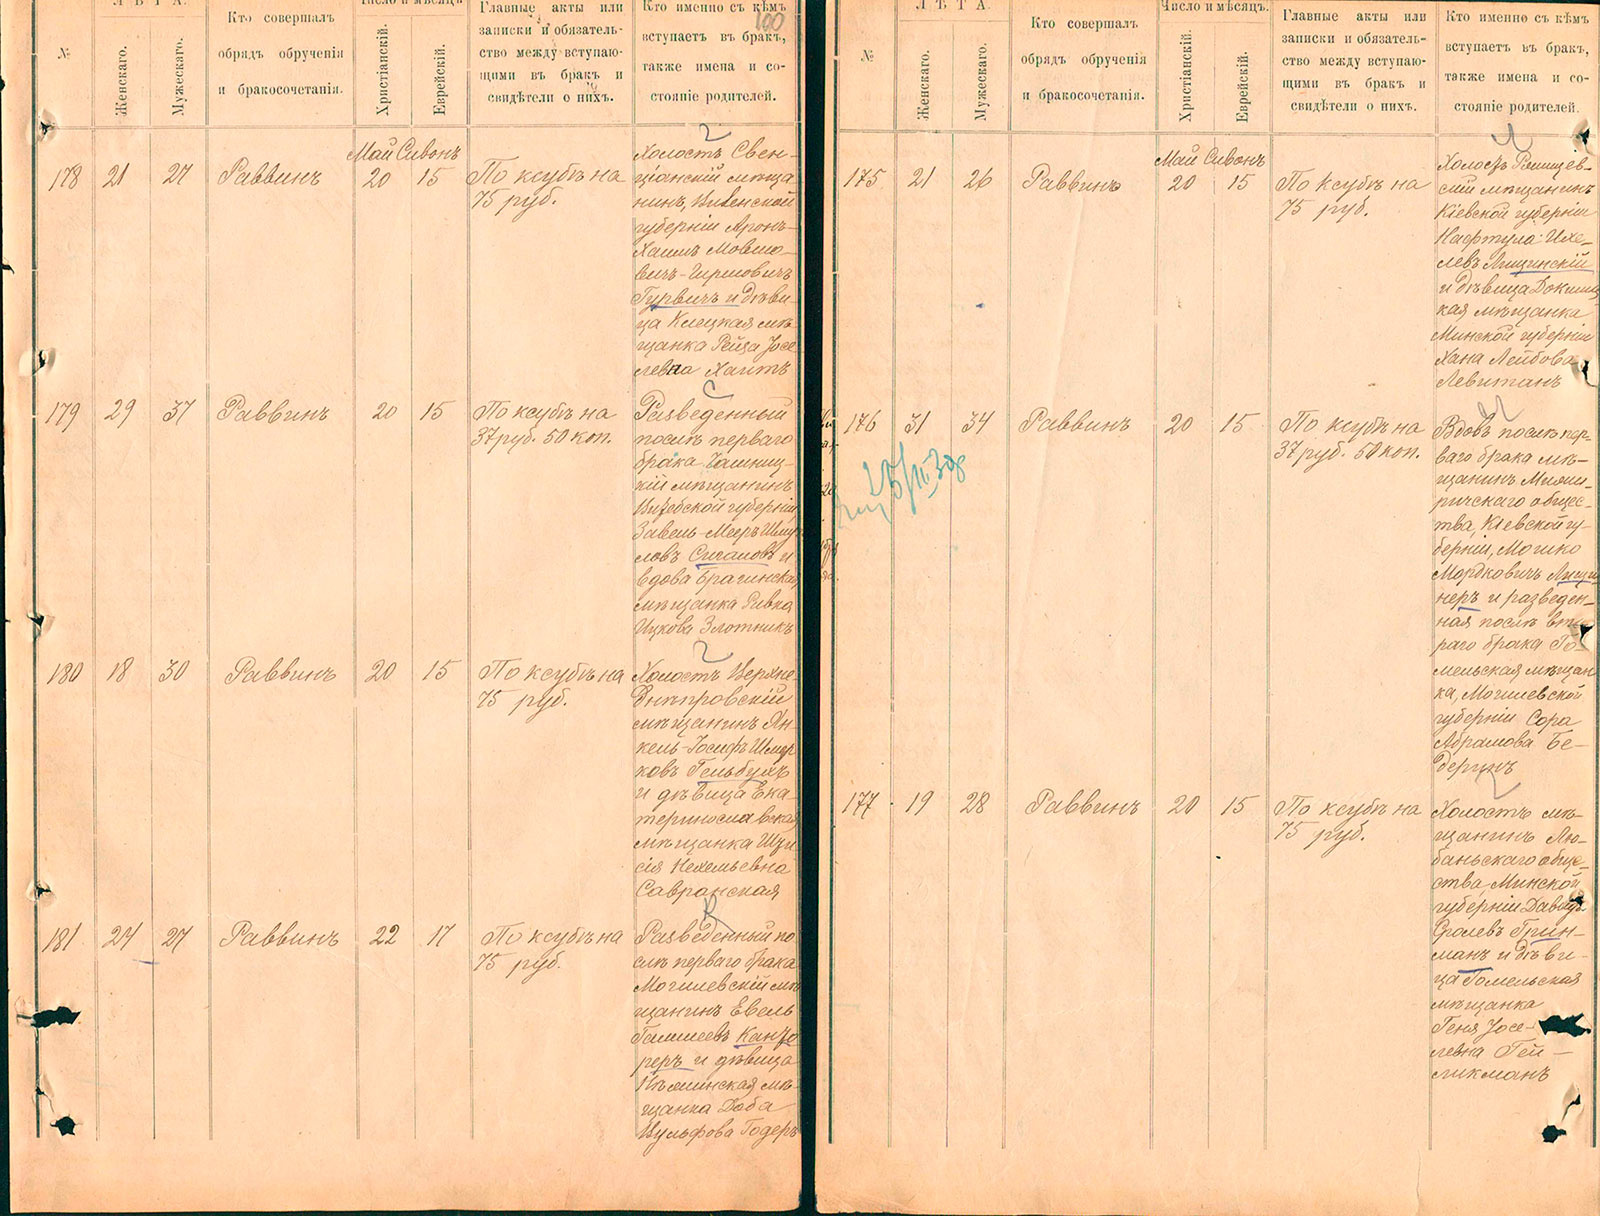 ЛѢТА.
№
Женскаго.
Мужескаго.
Кто совершалъ
обрядъ обрученія
и бракосочетанія.
Число и мѣсяцъ
Христіанскій.
Еврейскій.
Главные акты или
записки и обязатель-
ство между вступаю-
щими въ бракъ и
свидѣтели о нихъ.
Кто именно съ кѣмъ
вступаетъ въ бракъ,
также имена и со-
стояніе родителей.
100
Май Сивонъ
178 21 27 Раввинъ 20 15
По ксубѣ на
75 руб.
Холостъ Свен-
цянскій мѣща-
нинъ, Виленской
губерніи Аронъ-
Хаимъ Мовшо-
вичъ-Гиршовичъ
Гурвичъ и дѣви-
ца Клецкая мѣ-
щанка Рейза Іосе-
левна Хаитъ
179 29 37 Раввинъ 20 15
По ксубѣ на
37 руб. 50 коп.
Разведенный
послѣ перваго
брака Чашниц-
кій мѣщанинъ
Витебской губерніи
Завель-Мееръ Шму-
ловъ и
вдова Брагинская
мѣщанка Ривка
Ицкова Злотникъ
180 18 30 Раввинъ 20 15
По ксубѣ на
75 руб.
Холостъ Верхне-
Днѣпровскій
мѣщанинъ Ян-
кель-Іосифъ Шмер-
ковъ Гельбухъ
и дѣвица Ека-
теринославская
мѣщанка
Нехемьевна
Савранская
181 24 27 Раввинъ 22 17
По ксубѣ на
75 руб.
Разведенный по-
слѣ перваго брака
Могилевскій мѣ-
щанинъ Евель
Канто-
реръ и дѣвица
мѣ-
щанка Доба
Вульфова Годеръ
ЛѢТА.
№
Женскаго.
Мужескаго.
Кто совершалъ
обрядъ обрученія
и бракосочетанія.
Число и мѣсяцъ.
Христіанскій.
Еврейскій.
Главные акты или
записки и обязатель-
ство между вступаю-
щими въ бракъ и
свидѣтели о нихъ.
Кто именно съ кѣмъ
вступаетъ въ бракъ,
также имена и со-
стояніе родителей.
Май Сивонъ
175 21 26 Раввинъ 20 15
По ксубѣ на
75 руб.
Холостъ Ржищев-
скій мѣщанинъ
Кіевской губерніи
Нафтула Ихе-
левъ Лищинскій
и дѣвица Докшиц-
кая мѣщанка
Минской губерніи
Хана Лейбова
Левитанъ
176 31 34 Раввинъ 20 15
По ксубѣ на
37 руб. 50 коп.
Вдовъ послѣ пер-
ваго брака мѣ-
щанинъ Межи-
ричскаго общес-
тва, Кіевской гу-
берніи, Мошко
Мордковичъ Лищи-
неръ и разведен-
ная послѣ вто-
раго брака Го-
мельская мѣщан-
ка, Могилевской
губерніи Сора
Абрамова Бе-
дерикъ
177 19 28 Раввинъ 20 15
По ксубѣ на
75 руб.
Холостъ мѣ-
щанинъ Лю-
баньскаго обще-
ства, Минской
губерніи Давидъ
Сролевъ Грин-
манъ и дѣви-
ца Гомельская
мѣщанка
Геня Іосе-
левна Гей-
ликманъ